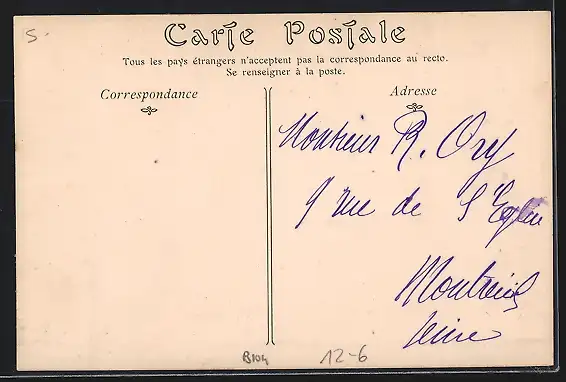 S.
Carte Postale
Tous les pays étrangers n'acceptent pas la correspondance au recto.
Se renseigner à la poste.
Correspondance
Adresse
Monsieur R. Ory
9 rue de l'Eglise
Montreuil
Seine
B104
12-6